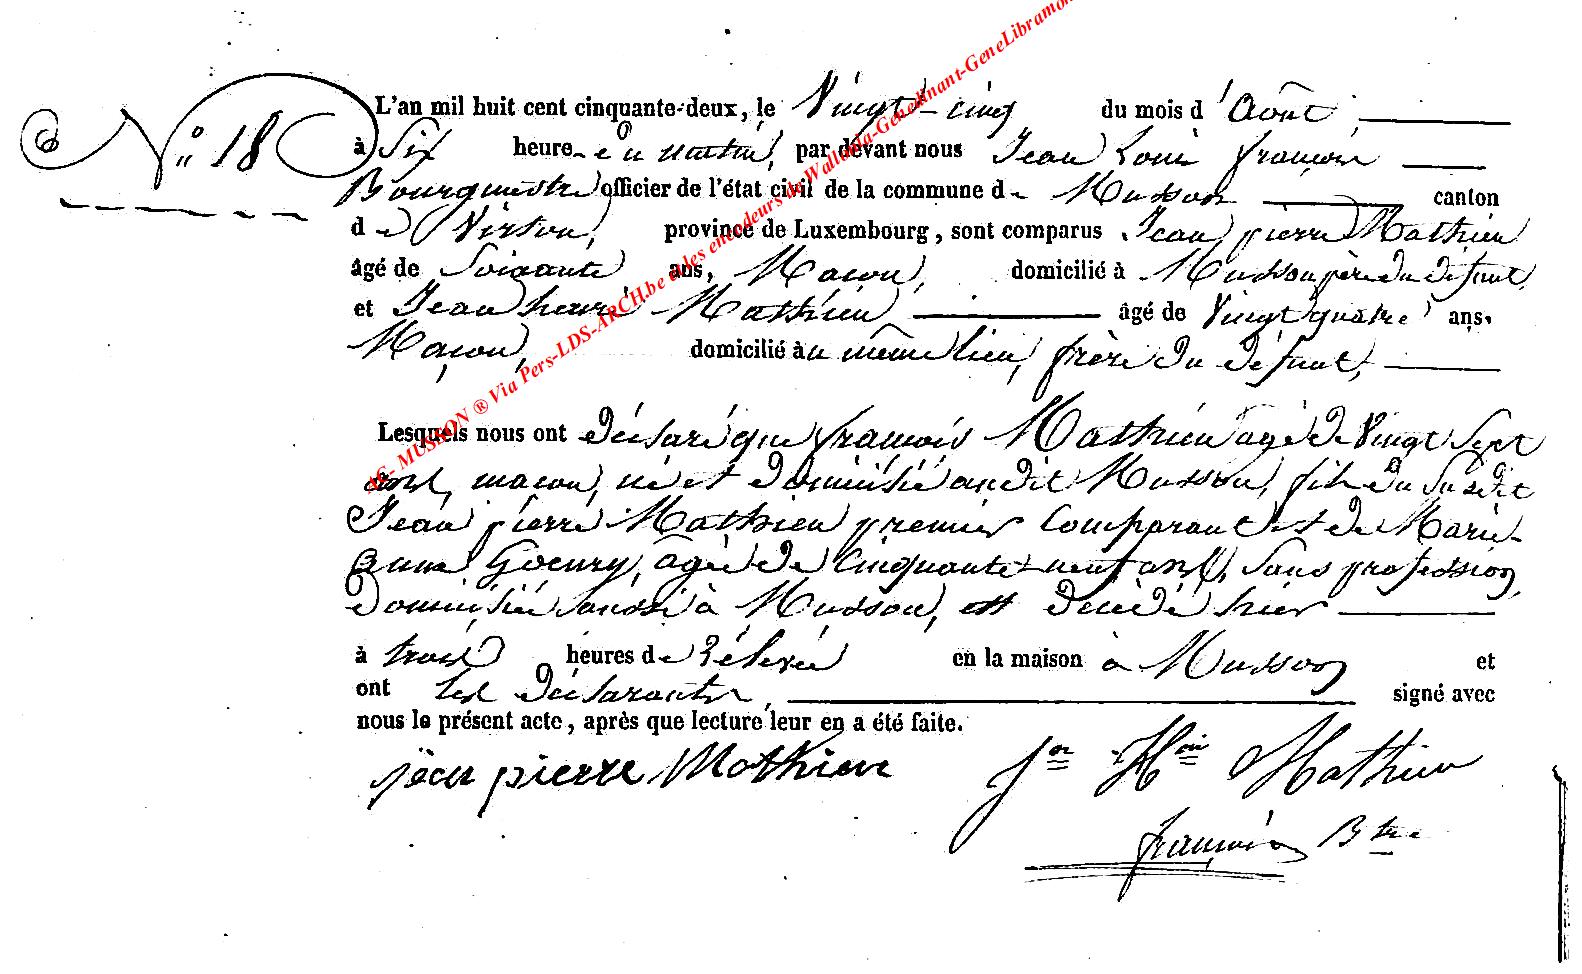 N° 18
L'an mil huit cent cinquante-deux, le Vingt-cinq du mois d'Août,
à Six heure du matin, par devant nous Jean Louis françois
Bourgmestre officier de l'état civil de la commune de Musson canton
de Virton, province de Luxembourg, sont comparus Jean pierre Mathieu
âgé de Soixante ans, Maçon, domicilié à Musson père du défunt,
et Jean henri Mathieu âgé de Vingt quatre ans.
Maçon, domicilié au même lieu, frère du défunt,
Lesquels nous ont déclaré que françois Mathieu agé de Vingt Sept
ans, macon, né et domicilié audit Musson, fils du Susdit
Jean pierre Mathieu premier Comparant et de Marie
anne Goeury, agée de Cinquante-neuf ans, Sans profession
domiciliée aussi à Musson, est décédé hier
à trois heures de rélevée en la maison à Musson et
ont les déclarants, signé avec
nous le présent acte, après que lecture leur en a été faite.
jean pierre Mathieu Jn Hri Mathieu
françois Btre
AG- MUSSON ® Via Pers-LDS-ARCH.be et des encodeurs de Wallonia-GeneDinant-GeneLibramon